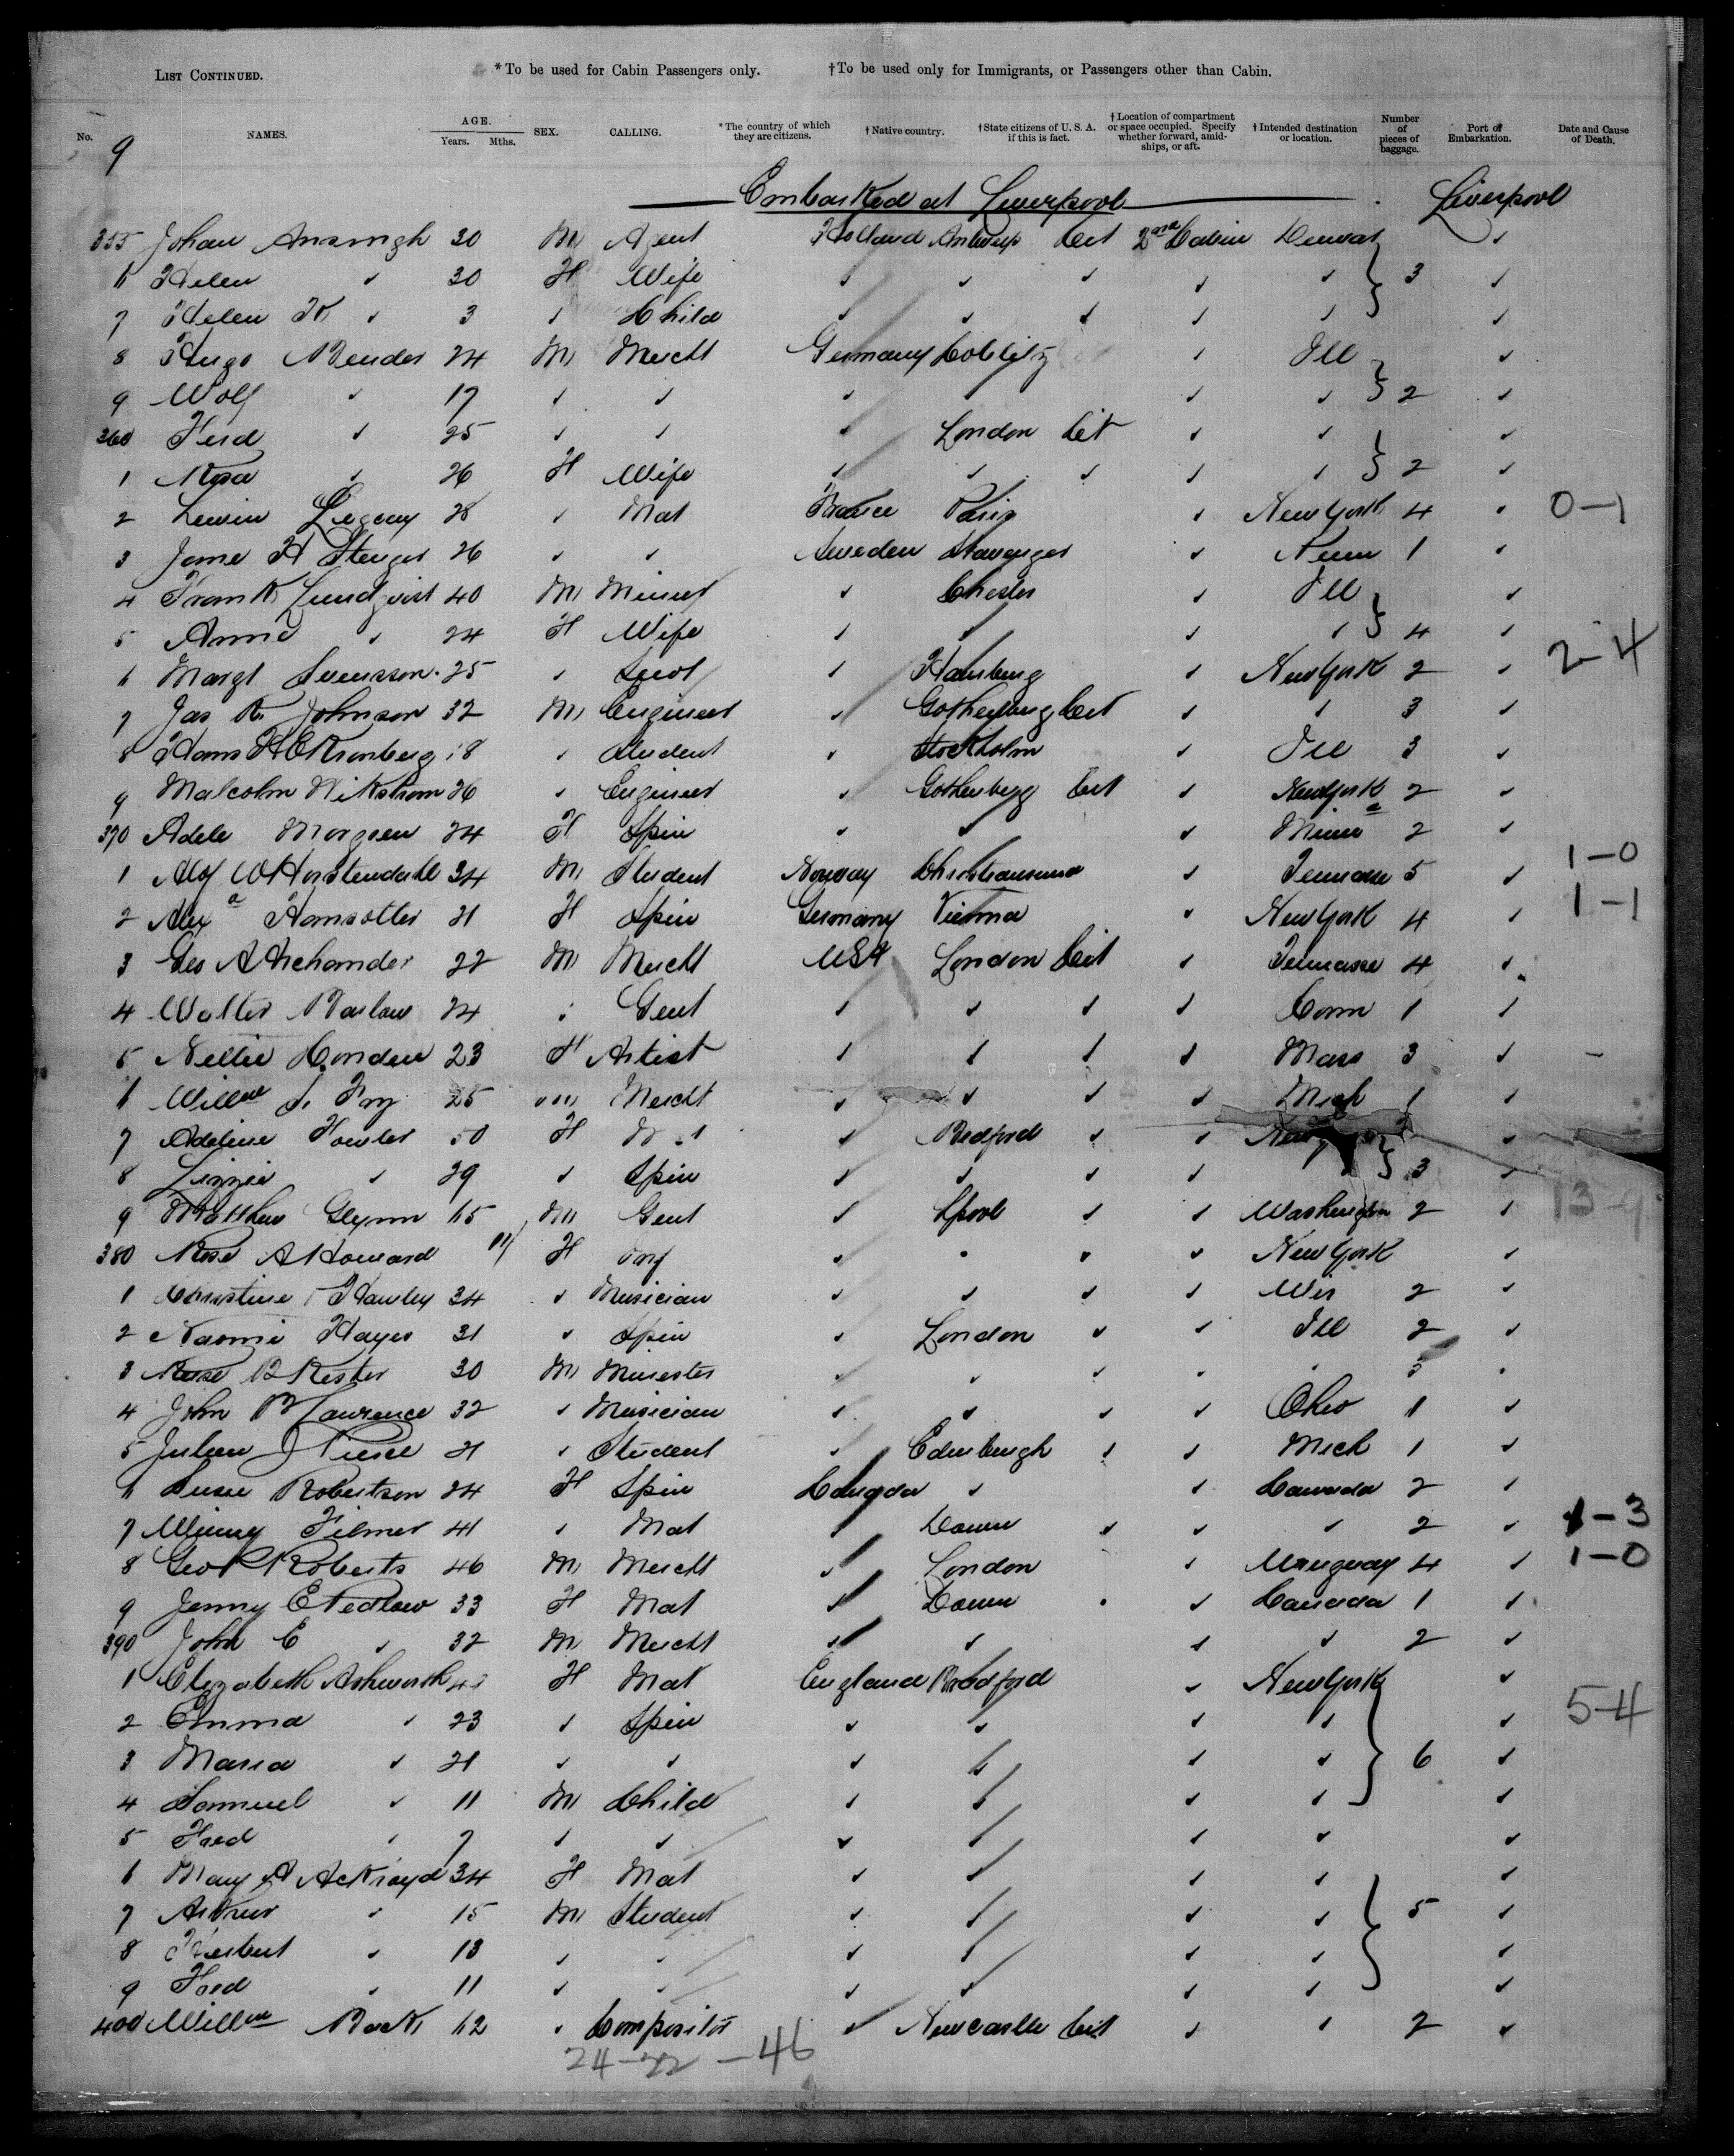 LIST CONTINUED. *To be used for Cabin Passengers only. †To be used only for Immigrants, or Passengers other than Cabin.
No. NAMES. AGE. Years. Mths. SEX. CALLING. *The country of which they are citizens. †Native country. †State citizens of U. S. A. if this is fact. †Location of compartment or space occupied. Specify whether forward, amidships, or aft. †Intended destination or location. Number of pieces of baggage. Port of Embarkation. Date and Cause of Death.
9
Embarked at Liverpool Liverpool
355 Johan Ansingh 30 M Agent Holland Antwerp Cit 2nd Cabin ✓
6 Helen ✓ 30 F Wife ✓ ✓ ✓ ✓ ✓ 3 ✓
7 Helen K ✓ 3 ✓ Child ✓ ✓ ✓ ✓ ✓ ✓
8 Hugo Bender 24 M Mercht Germany ✓ Ill ✓
9 Wolf ✓ 17 ✓ ✓ ✓ ✓ ✓ ✓ 2 ✓
360 Ferd ✓ 25 ✓ ✓ ✓ London Cit ✓ ✓ ✓
1 Rosa ✓ 26 F Wife ✓ ✓ ✓ ✓ ✓ 2 ✓
2 28 ✓ Mat France Paris ✓ New York 4 ✓ 0-1
3 Jame H Stenger 26 ✓ ✓ Sweden Stavanger ✓ 1 ✓
4 Frank Lundqvist 40 M Miner ✓ Chester ✓ Ill ✓
5 Anna ✓ 24 F Wife ✓ ✓ ✓ ✓ 4 ✓
6 Margt Svensson 25 ✓ Servt ✓ ✓ New York 2 ✓ 2-4
7 Jas R. Johnson 32 M Engineer ✓ Gothenburg Cit ✓ ✓ 3 ✓
8 Hans H E Kronberg 18 ✓ Student ✓ Stockholm ✓ Ill 3 ✓
9 Malcolm Wikstrom 26 ✓ Engineer ✓ Gothenburg Cit ✓ New York 2 ✓
370 Adele 24 F Spin ✓ ✓ ✓ Minna 2 ✓
1 34 M Student Norway Christiansund ✓ Tennasse 5 ✓ 1-0
2 Alexa 21 F Spin Germany Vienna ✓ New York 4 ✓ 1-1
3 Geo A 22 M Mercht USA London Cit ✓ Tennasse 4 ✓
4 Walter Barlow 24 ✓ Gent ✓ ✓ ✓ ✓ Conn 1 ✓
5 Nellie Conden 23 F Artist ✓ ✓ ✓ ✓ Mass 3 ✓ -
6 Willm 25 M Mercht ✓ ✓ ✓ ✓ Mich 1 ✓
7 Adeline Fowler 50 F ✓ Bedford ✓ ✓ ✓
8 Lizzie ✓ 29 ✓ Spin ✓ ✓ ✓ ✓ 3 ✓
9 Matthew Glynn 65 M Gent ✓ Lpool ✓ ✓ Washington 2 ✓ 13-9
380 Rose A Howard 11 F Inf ✓ ✓ ✓ ✓ New York ✓
1 Christine Hawley 34 ✓ Musician ✓ ✓ ✓ ✓ Wis 2 ✓
2 Naomi Hayes 31 ✓ Spin ✓ London ✓ ✓ Ill 2 ✓
3 B Kester 30 M Minister ✓ ✓ ✓ ✓ ✓ 3 ✓
4 John B Lawrence 32 ✓ Musician ✓ ✓ ✓ ✓ Ohio 1 ✓
5 Julien J Pierce 21 ✓ Student ✓ Edinburgh ✓ ✓ Mich 1 ✓
6 Robertson 24 F Spin Canada ✓ ✓ Canada 2 ✓
7 Minny Filmer 41 ✓ Mat ✓ ✓ ✓ ✓ 2 ✓ 1-3
8 Geo P Roberts 46 M Mercht ✓ London ✓ Uruguay 4 ✓ 1-0
9 Jenny E Pedlow 33 F Mat ✓ ✓ ✓ Canada 1 ✓
390 John E ✓ 32 M Mercht ✓ ✓ ✓ ✓ 2 ✓
1 Elizabeth Ashworth F Mat England Bradford ✓ New York ✓
2 Emma ✓ 23 ✓ Spin ✓ ✓ ✓ ✓ ✓ 5-4
3 Maria ✓ 21 ✓ ✓ ✓ ✓ ✓ ✓ 6 ✓
4 Sammuel ✓ 11 M Child ✓ ✓ ✓ ✓ ✓
5 Fred ✓ 7 ✓ ✓ ✓ ✓ ✓ ✓ ✓
6 Mary A Ackroyd 34 F Mat ✓ ✓ ✓ ✓ ✓
7 Arthur ✓ 15 M Student ✓ ✓ ✓ ✓ 5 ✓
8 Herbert ✓ 13 ✓ ✓ ✓ ✓ ✓ ✓ ✓
9 Fred ✓ 11 ✓ ✓ ✓ ✓ ✓ ✓ ✓
400 Willm 62 ✓ Compositor ✓ Newcastle Cit ✓ ✓ 2 ✓
24-22-46